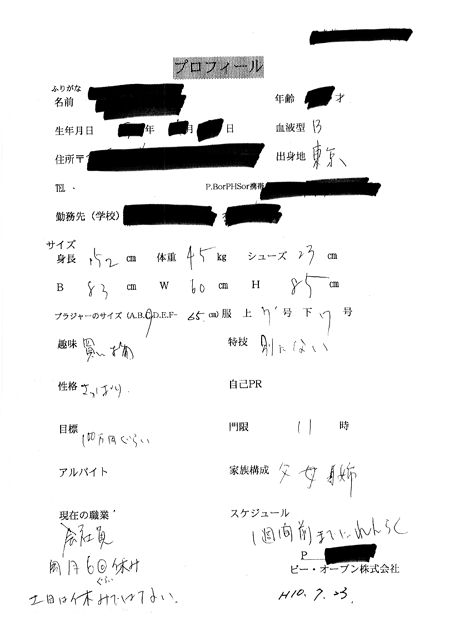 プロフィール
ふりがな
名前 年齢 才
生年月日 年 月 日 血液型 B
住所〒 出身地 東京
TEL P.BorPHSor携帯
勤務先（学校）
サイズ
身長 152 cm 体重 45 kg シューズ 23 cm
B 83 cm W 60 cm H 85 cm
ブラジャーのサイズ（A.B.C.D.E.F- 65 cm）服 上 7 号 下 7 号
趣味 買い物 特技 別にない
性格 さっぱり 自己PR
目標 100万円ぐらい 門限 11 時
アルバイト 家族構成 父 母 姉
現在の職業 スケジュール
会社員 1週間前までにれんらく
月6回ぐらい休み P
ビー・オープン株式会社
土日は休みではない。 H10.7.23.